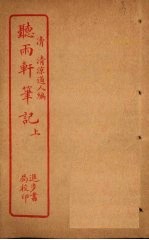 清 清涼道人編
聽雨軒筆記 上
進步書
局校印